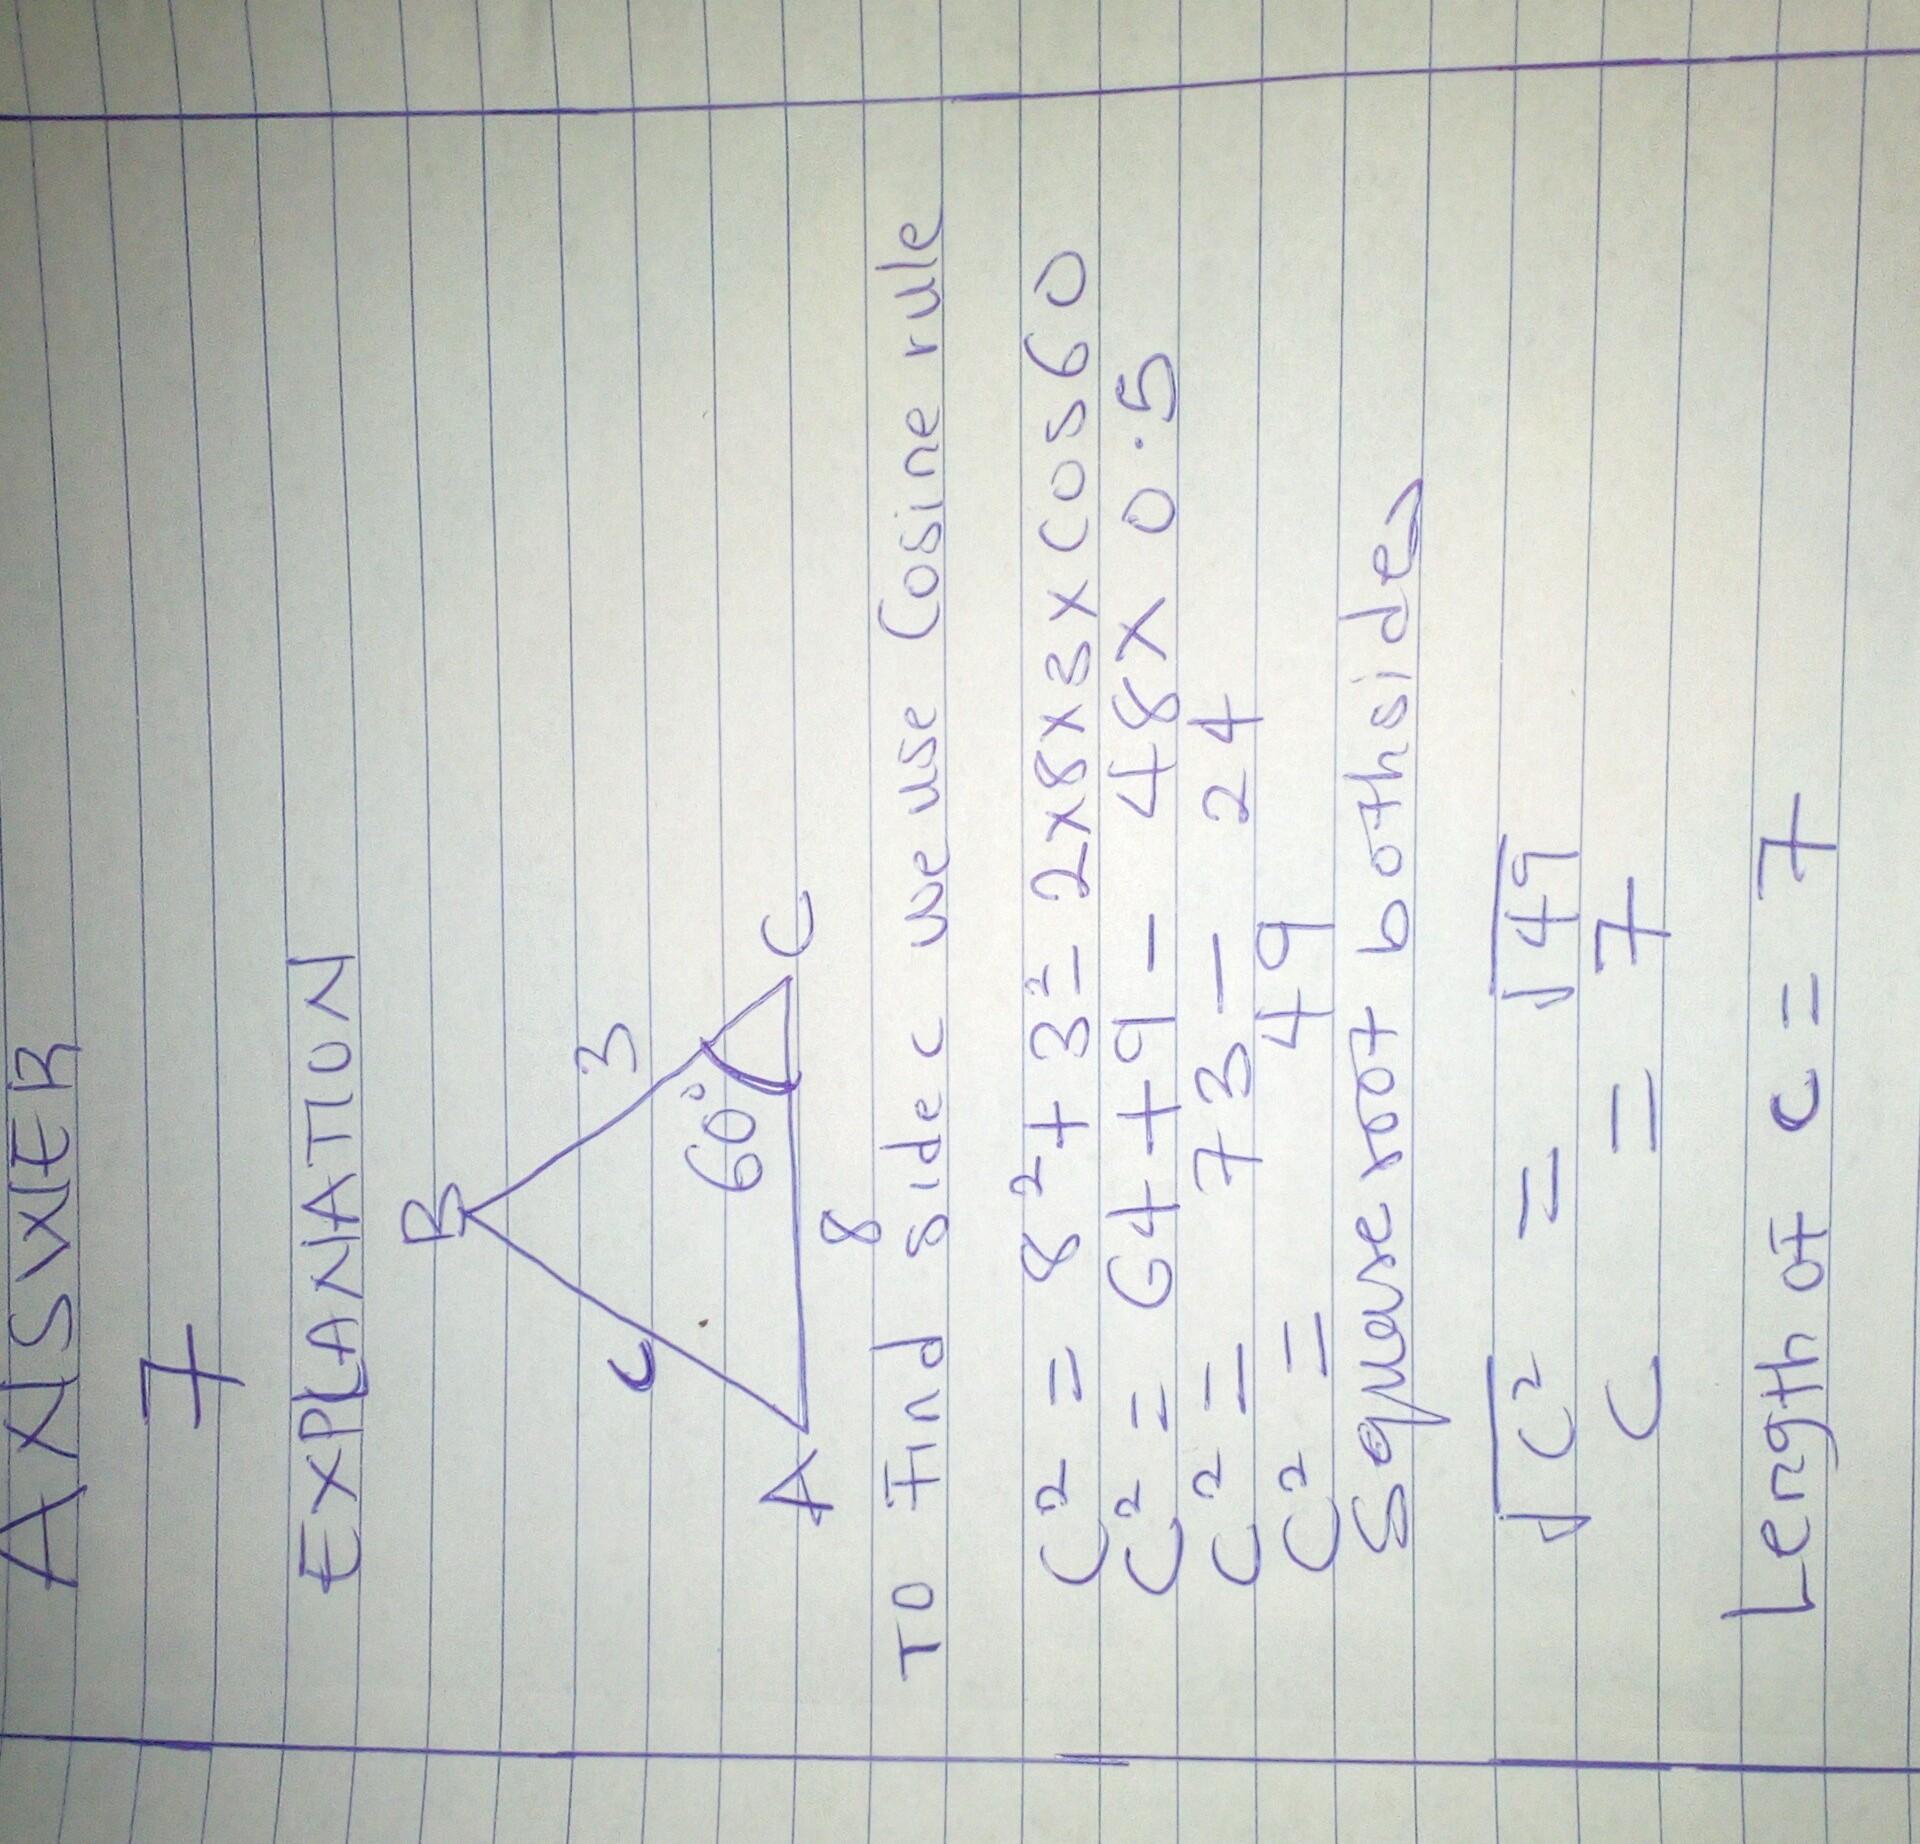 ANSWER
7
EXPLANATION
B
3
C
60°
A
C
8
TO Find side c we use Cosine rule
C² = 8² + 3² - 2x8x3x cos60
C² = 64 + 9 - 48x 0.5
C² = 73 - 24
C² = 49
Square root both sides
√C² = √49
C = 7
Length of c = 7